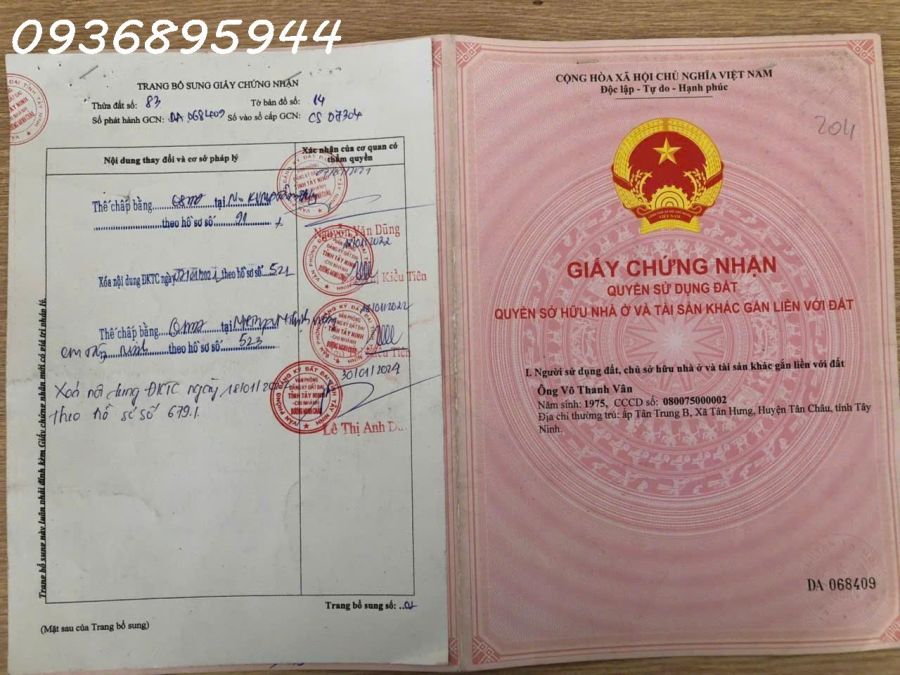 0936895944
TRANG BỔ SUNG GIẤY CHỨNG NHẬN
Thửa đất số: 83 Tờ bản đồ số: 14
Số phát hành GCN: DA 068409 Số vào sổ cấp GCN: CS 07304
Nội dung thay đổi và cơ sở pháp lý
Xác nhận của cơ quan có thẩm quyền
Thế chấp bằng QSDĐ tại
theo hồ sơ số 91
Nguyễn Văn Dũng
18/01/2022
Xóa nội dung ĐKTC ngày theo hồ sơ số 521
Kiều Tiên
18/01/2022
Thế chấp bằng QSDĐ tại
theo hồ sơ số 523
30/01/2024
Xoá nội dung ĐKTC ngày 18/01/
theo hồ sơ số 679.1
Lê Thị Anh
Trang bổ sung này luôn phải đính kèm Giấy chứng nhận mới có giá trị pháp lý.
Trang bổ sung số: 01
(Mặt sau của Trang bổ sung)
CỘNG HÒA XÃ HỘI CHỦ NGHĨA VIỆT NAM
Độc lập - Tự do - Hạnh phúc
204
GIẤY CHỨNG NHẬN
QUYỀN SỬ DỤNG ĐẤT
QUYỀN SỞ HỮU NHÀ Ở VÀ TÀI SẢN KHÁC GẮN LIỀN VỚI ĐẤT
I. Người sử dụng đất, chủ sở hữu nhà ở và tài sản khác gắn liền với đất
Ông Võ Thanh Vân
Năm sinh: 1975, CCCD số: 080075000002
Địa chỉ thường trú: ấp Tân Trung B, Xã Tân Hưng, Huyện Tân Châu, tỉnh Tây
Ninh.
DA 068409